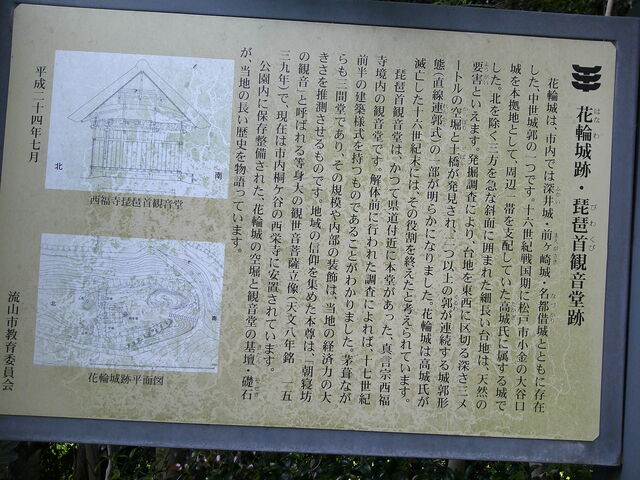 花輪城跡・琵琶首観音堂跡
はなわ
びわくび
花輪城は、市内では深井城・前ヶ崎城・名都借城とともに存在
した、中世城郭の一つです。十六世紀戦国期に松戸市小金の大谷口
城を本拠地として、周辺一帯を支配していた高城氏に属する城で
した。北を除く三方を急な斜面に囲まれた細長い台地は、天然の
要害といえます。発掘調査により、台地を東西に区切る深さ三メ
ートルの空堀と土橋が発見され、二つ以上の郭が連続する城郭形
態(直線連郭式)の一部が明らかになりました。花輪城は高城氏が
滅亡した十六世紀末には、その役割を終えたと考えられています。
琵琶首観音堂は、かつて県道付近に本堂があった、真言宗西福
寺境内の観音堂です。解体前に行われた調査によれば、十七世紀
前半の建築様式を持つものであることがわかりました。茅葺なが
らも三間堂であり、その規模や内部の装飾は、当地の経済力の大
きさを推測させるものです。地域の信仰を集めた本尊は、「朝寝坊
の観音」と呼ばれる等身大の観世音菩薩立像(天文八年銘 一五
三九年)で、現在は市内桐ケ谷の西栄寺に安置されています。
公園内に保存整備された、花輪城の空堀と観音堂の基壇・礎石
が、当地の長い歴史を物語っています。
平成二十四年七月
流山市教育委員会
北
南
西福寺琵琶首観音堂
花輪城跡平面図